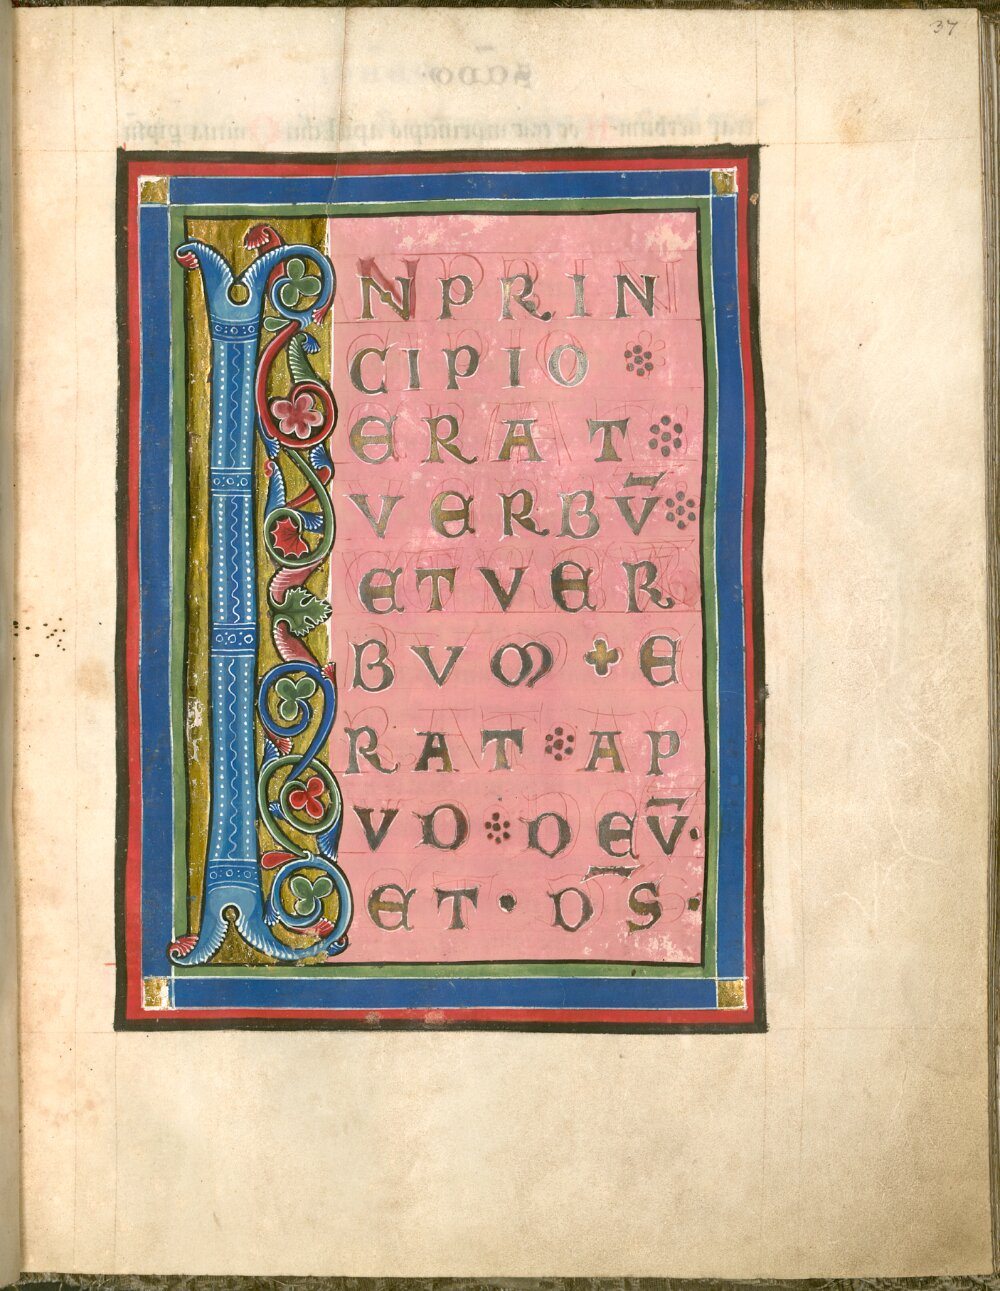 37
IN PRIN
CIPIO
ERAT
VERBU̅
ET VER
BUM E
RAT AP
UD DEU̅
ET · DS̅ ·